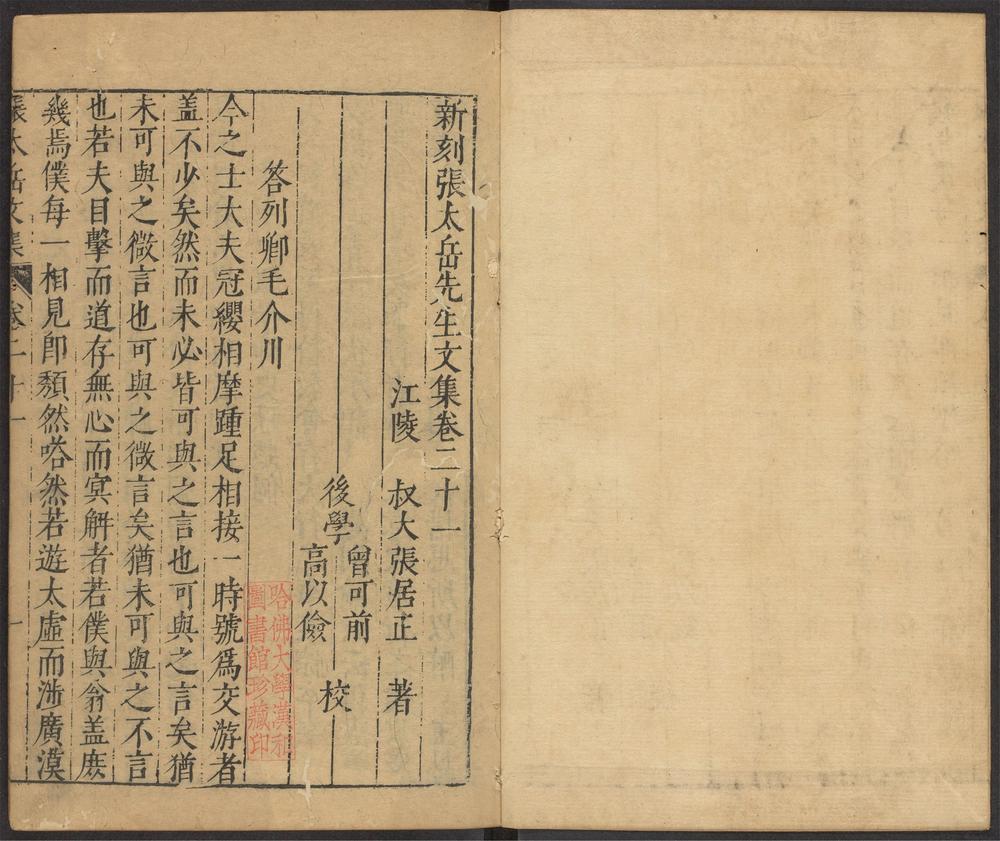 新刻張太岳先生文集卷二十一
江陵　叔大張居正　著
後學　曾可前　校
高以儉
答列卿毛介川
今之士大夫冠纓相摩踵足相接一時號爲交游者
盖不少矣然而未必皆可與之言也可與之言矣猶
未可與之微言也可與之微言矣猶未可與之不言
也若夫目擊而道存無心而冥解者若僕與翁盖庻
幾焉僕每一相見卽頽然嗒然若遊太虛而涉廣漠
張太岳文集　卷二十一　一
哈佛大學漢和
圖書館珍藏印